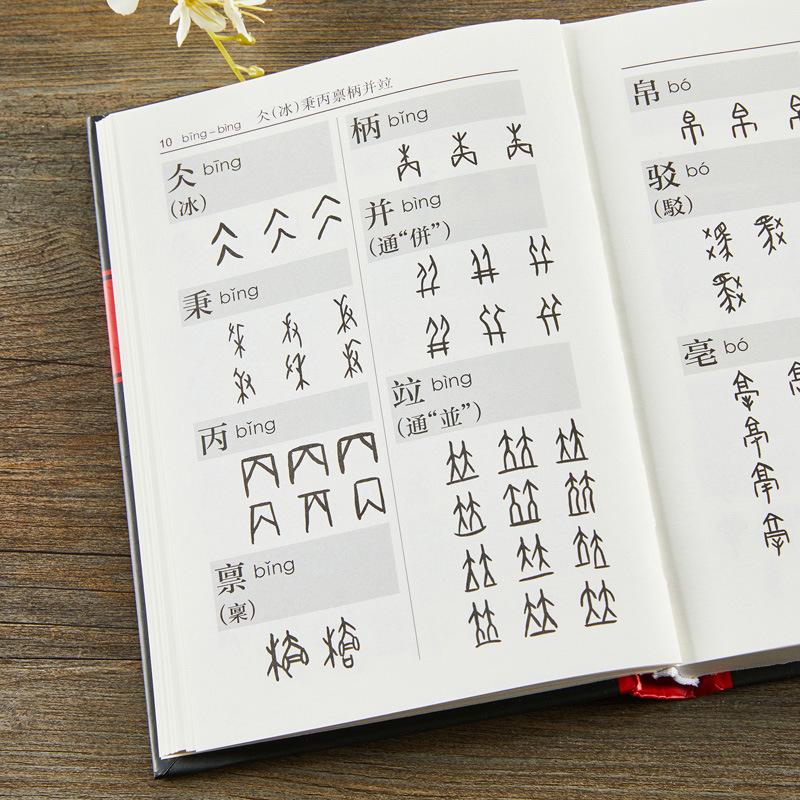 10 bīng–bìng 仌(冰)秉丙禀柄并竝
仌 bīng
(冰)
秉 bǐng
丙 bǐng
禀 bǐng
(稟)
柄 bǐng
并 bìng
(通“併”)
竝 bìng
(通“並”)
帛 bó
驳 bó
(駁)
亳 bó